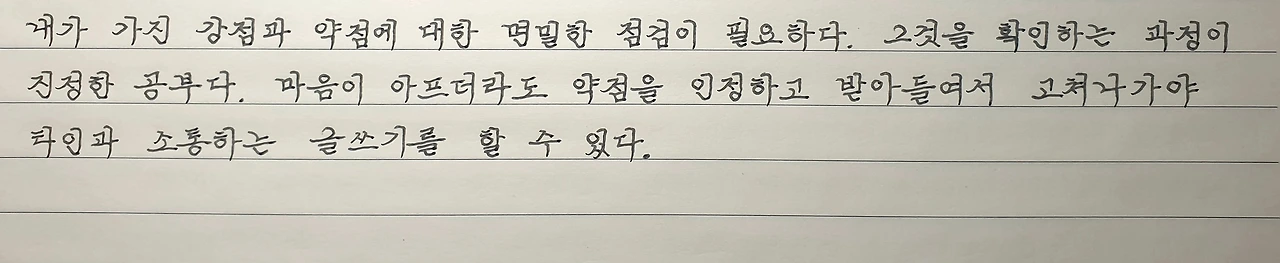 내가 가진 강점과 약점에 대한 면밀한 점검이 필요하다. 그것을 확인하는 과정이
진정한 공부다. 마음이 아프더라도 약점을 인정하고 받아들여서 고쳐나가야
타인과 소통하는 글쓰기를 할 수 있다.